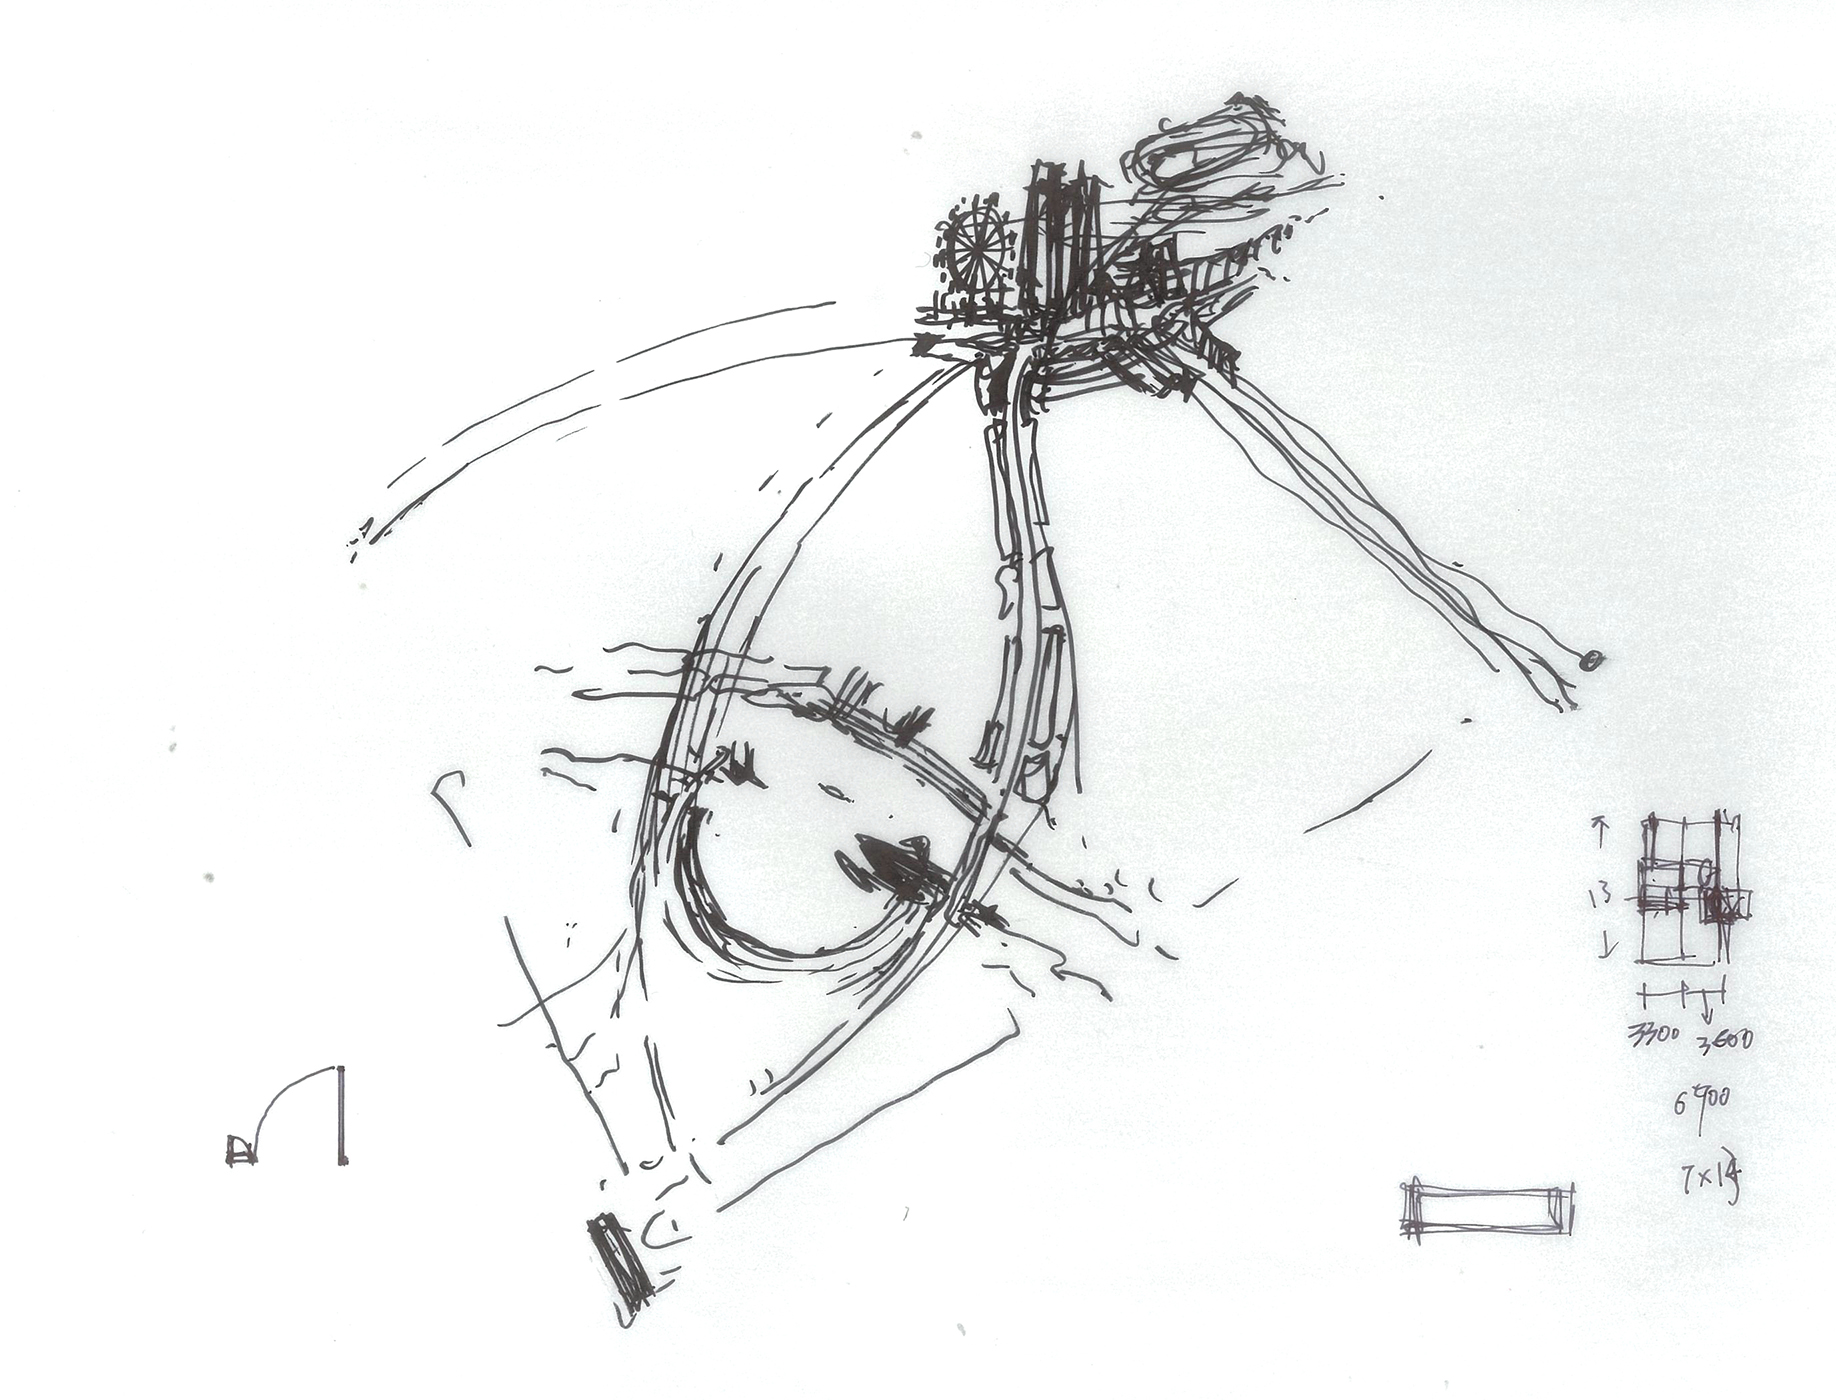 13
3300 3600
6900
7×14